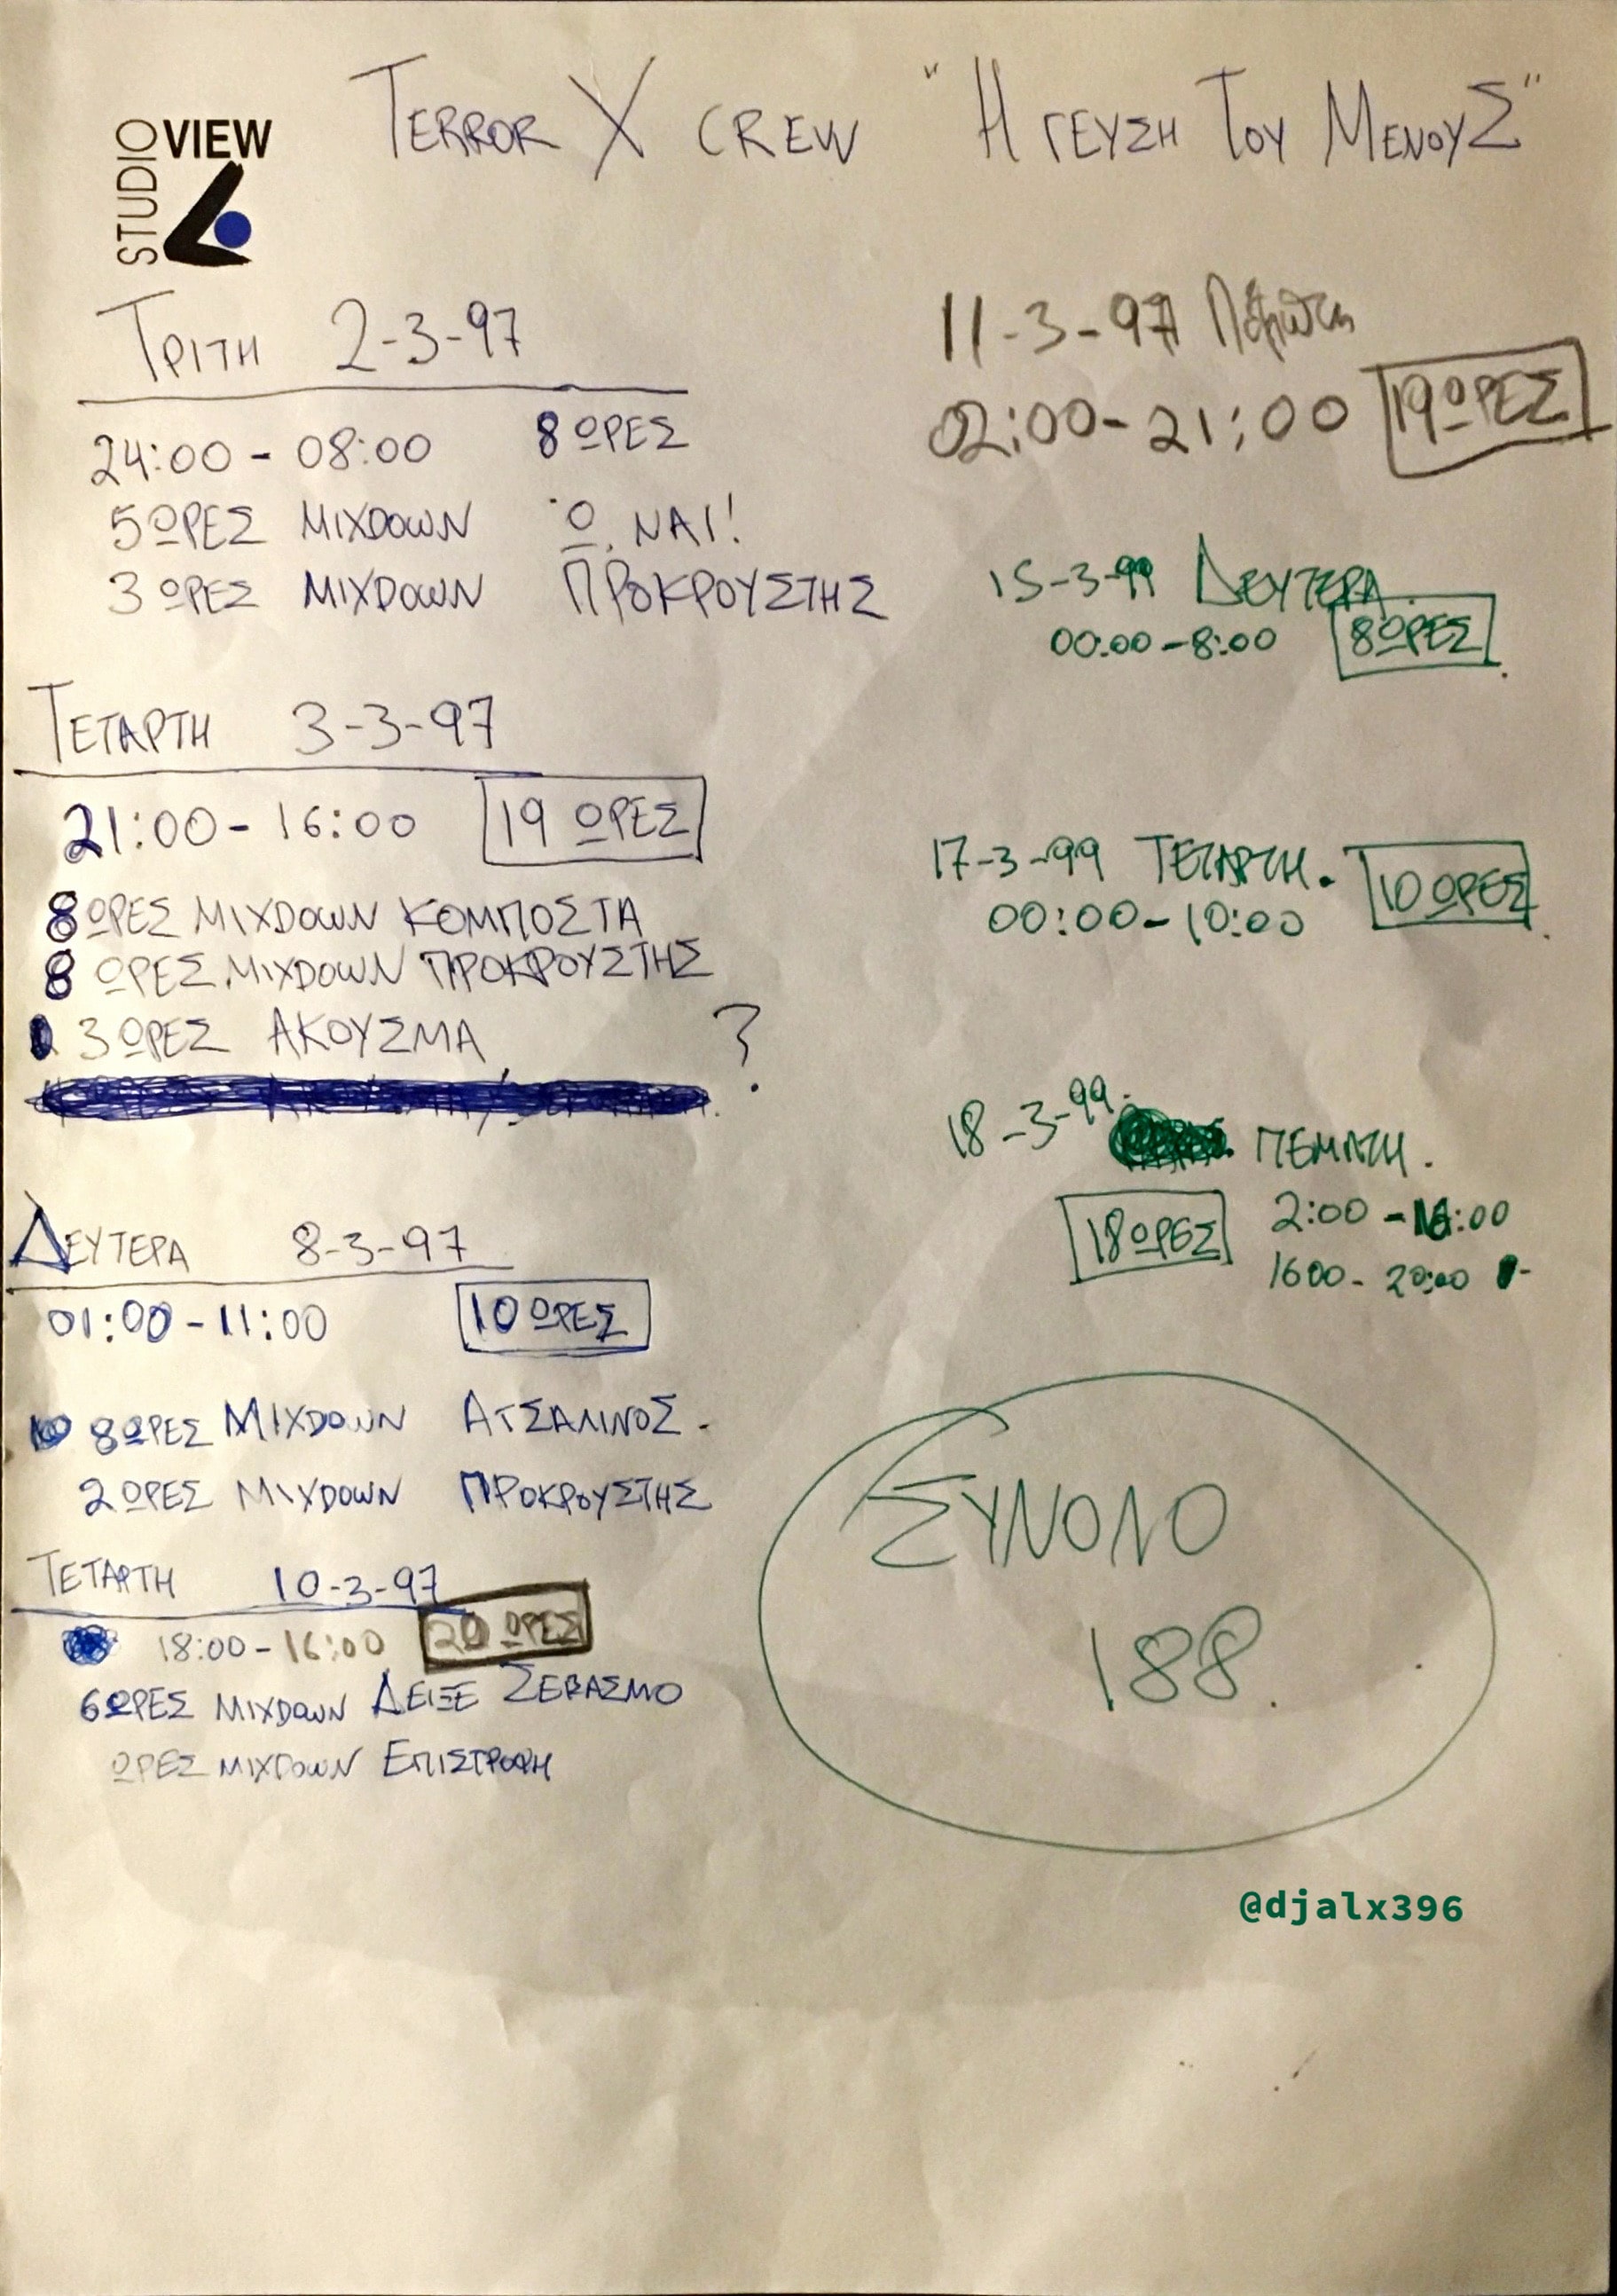 STUDIO VIEW
TERROR X CREW "Η ΓΕΥΣΗ ΤΟΥ ΜΕΝΟΥΣ"
ΤΡΙΤΗ 2-3-97
24:00 - 08:00 8 ΩΡΕΣ
5 ΩΡΕΣ MIXDOWN Ω, ΝΑΙ!
3 ΩΡΕΣ MIXDOWN ΠΡΟΚΡΟΥΣΤΗΣ
ΤΕΤΑΡΤΗ 3-3-97
21:00 - 16:00 19 ΩΡΕΣ
8 ΩΡΕΣ MIXDOWN ΚΟΜΠΟΣΤΑ
8 ΩΡΕΣ MIXDOWN ΠΡΟΚΡΟΥΣΤΗΣ
3 ΩΡΕΣ ΑΚΟΥΣΜΑ ?
ΔΕΥΤΕΡΑ 8-3-97
01:00 - 11:00 10 ΩΡΕΣ
8 ΩΡΕΣ MIXDOWN ΑΤΣΑΛΙΝΟΣ.
2 ΩΡΕΣ MIXDOWN ΠΡΟΚΡΟΥΣΤΗΣ
ΤΕΤΑΡΤΗ 10-3-97
18:00 - 16:00 20 ΩΡΕΣ
6 ΩΡΕΣ MIXDOWN ΔΕΙΞΕ ΣΕΒΑΣΜΟ
ΩΡΕΣ MIXDOWN ΕΠΙΣΤΡΟΦΗ
11-3-97
02:00 - 21:00 19 ΩΡΕΣ
15-3-99 ΔΕΥΤΕΡΑ.
00:00 - 8:00 8 ΩΡΕΣ
17-3-99 ΤΕΤΑΡΤΗ. 10 ΩΡΕΣ
00:00 - 10:00
18-3-99. ΠΕΜΠΤΗ.
18 ΩΡΕΣ 2:00 - 16:00
1600 - 20:00
ΣΥΝΟΛΟ
188.
@djalx396